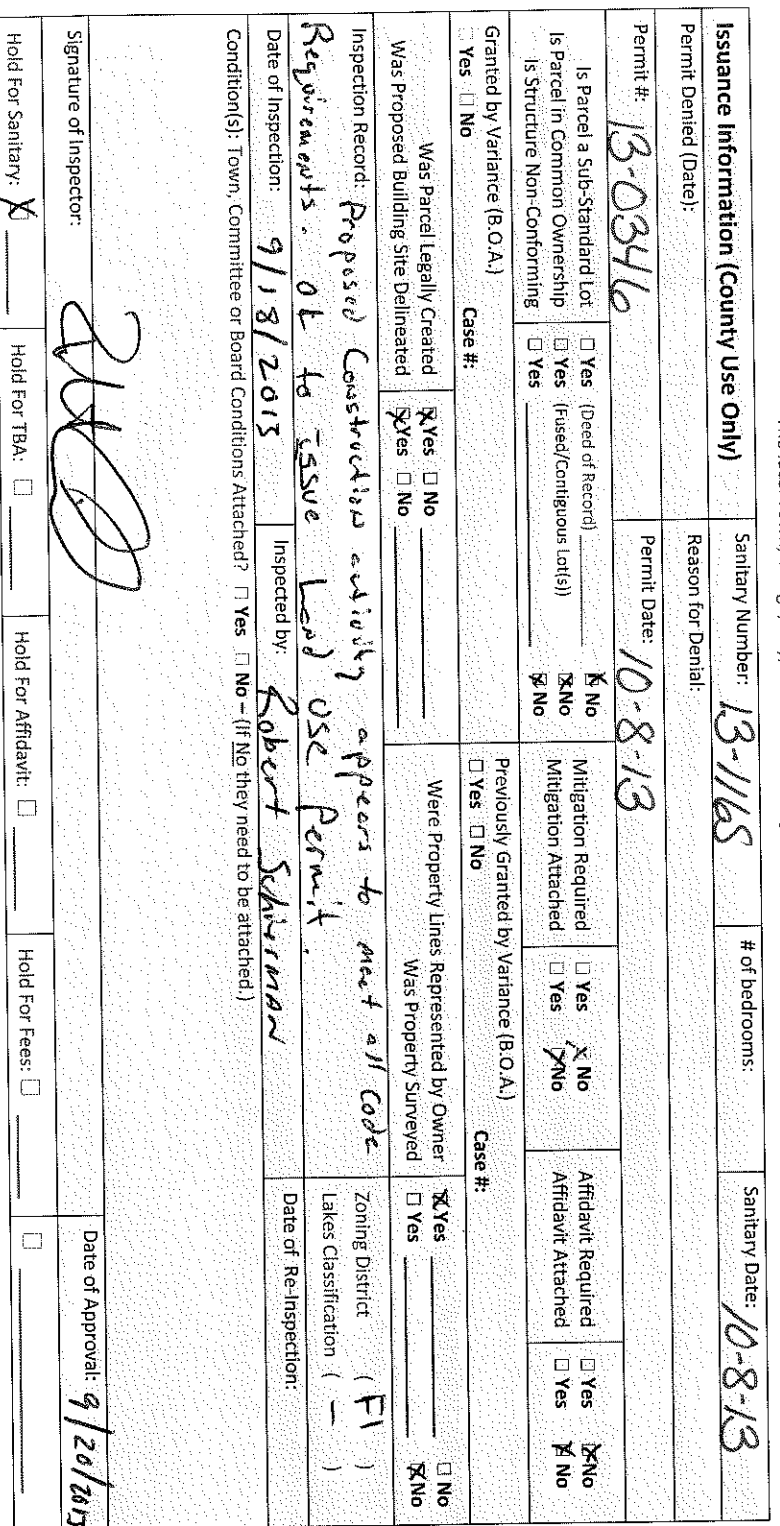 Issuance Information (County Use Only)
Sanitary Number: 13-116S
# of bedrooms:
Sanitary Date: 10-8-13
Permit Denied (Date):
Reason for Denial:
Permit #: 13-0346
Permit Date: 10-8-13
Is Parcel a Sub-Standard Lot ☐ Yes (Deed of Record) ☒ No
Is Parcel in Common Ownership ☐ Yes (Fused/Contiguous Lot(s)) ☒ No
Is Structure Non-Conforming ☐ Yes ☒ No
Mitigation Required ☐ Yes ☒ No
Mitigation Attached ☐ Yes ☒ No
Affidavit Required ☐ Yes ☒ No
Affidavit Attached ☐ Yes ☒ No
Granted by Variance (B.O.A.)
☐ Yes ☐ No Case #:
Previously Granted by Variance (B.O.A.)
☐ Yes ☐ No Case #:
Was Parcel Legally Created ☒ Yes ☐ No
Was Proposed Building Site Delineated ☒ Yes ☐ No
Were Property Lines Represented by Owner ☒ Yes ☐ No
Was Property Surveyed ☐ Yes ☒ No
Inspection Record: Proposed Construction activity appears to meet all Code
Requirements. Ok to issue Land Use Permit.
Zoning District ( F1 )
Lakes Classification ( - )
Date of Inspection: 9/18/2013
Inspected by: Robert Schierman
Date of Re-Inspection:
Condition(s): Town, Committee or Board Conditions Attached? ☐ Yes ☐ No – (If No they need to be attached.)
Signature of Inspector:
Date of Approval: 9/20/2013
Hold For Sanitary: ☒
Hold For TBA: ☐
Hold For Affidavit: ☐
Hold For Fees: ☐
☐